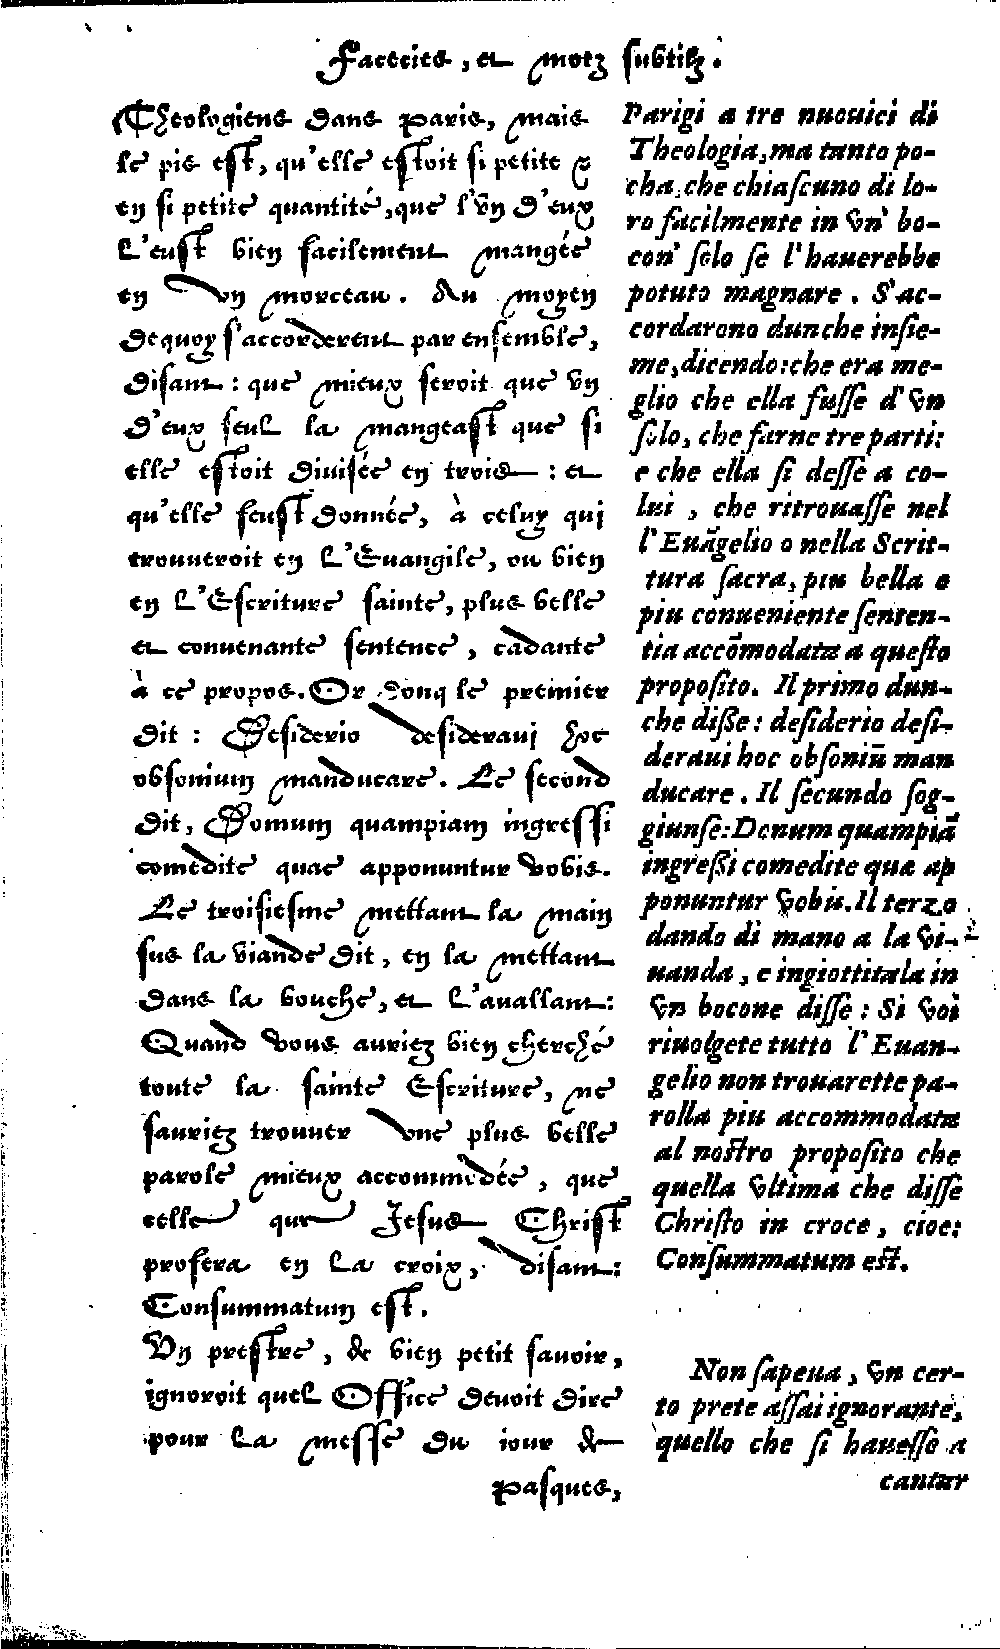 Facecies, et motz subtilz.
Theologiens dans Paris, mais
le pis est, qu'elle estoit si petite &
en si petite quantité, que l'vn d'eux
l'eust bien facilement mangée
en vn morceau. Au moyen
dequoy s'accorderent par ensemble,
disant : que mieux seroit que vn
d'eux seul la mangeast que si
elle estoit diuisée en trois : et
qu'elle feust donnée, à celuy qui
trouueroit en l'Euangile, ou bien
en l'Escriture sainte, plus belle
et conuenante sentence, cadante
à ce propos. Or donq le premier
dit : Desiderio desideraui hoc
obsonium manducare. Le second
dit, Domum quampiam ingressi
comedite quae apponuntur vobis.
Le troisiesme mettant la main
sus la viande dit, en la mettant
dans la bouche, et l'auallant:
Quand vous auriez bien cherché
toute la sainte Escriture, ne
sauriez trouuer vne plus belle
parole mieux accommodée, que
celle que Jesus Christ
profera en la croix, disant:
Consummatum est.
Vn prestre, de bien petit sauoir,
ignoroit quel Office deuoit dire
pour la messe du iour de
Pasques,
Parigi a tre nuouici di
Theologia, ma tanto po-
cha, che chiaſcuno di lo-
ro facilmente in vn' bo-
con' ſolo ſe l'hauerebbe
potuto magnare. S'ac-
cordarono dunche inſie-
me, dicendo: che era me-
glio che ella fuſſe d'vn
ſolo, che farne tre parti:
e che ella ſi deſſe a co-
lui, che ritrouaſſe nel
l'Euãgelio o nella Scrit-
tura ſacra, piu bella e
piu conueniente ſenten-
tia accõmodata a queſto
propoſito. Il primo dun-
che diſſe: deſiderio deſi-
deraui hoc obſoniũ man
ducare. Il ſecundo ſog-
giunſe: Domum quampiã
ingreſſi comedite quæ ap
ponuntur vobis. Il terzo
dando di mano a la vi-
uanda, e ingiottitala in
vn bocone diſſe: Si voi
riuolgete tutto l'Euan-
gelio non trouarette pa-
rolla piu accommodata
al noſtro propoſito che
quella vltima che diſſe
Chriſto in croce, cioe:
Conſummatum eſt.
Non ſapeua, vn cer-
to prete aſſai ignorante,
quello che ſi haueſſe a
cantar